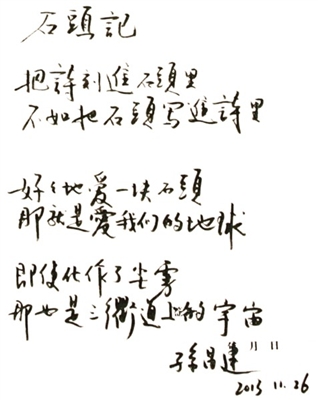 石頭記
把詩刻進石頭里
不如把石頭写進詩里
好々地愛一块石頭
那就是愛我们的地球
即使化作了尘雾
那也是街道上的宇宙
孫昌建
2013 11.26